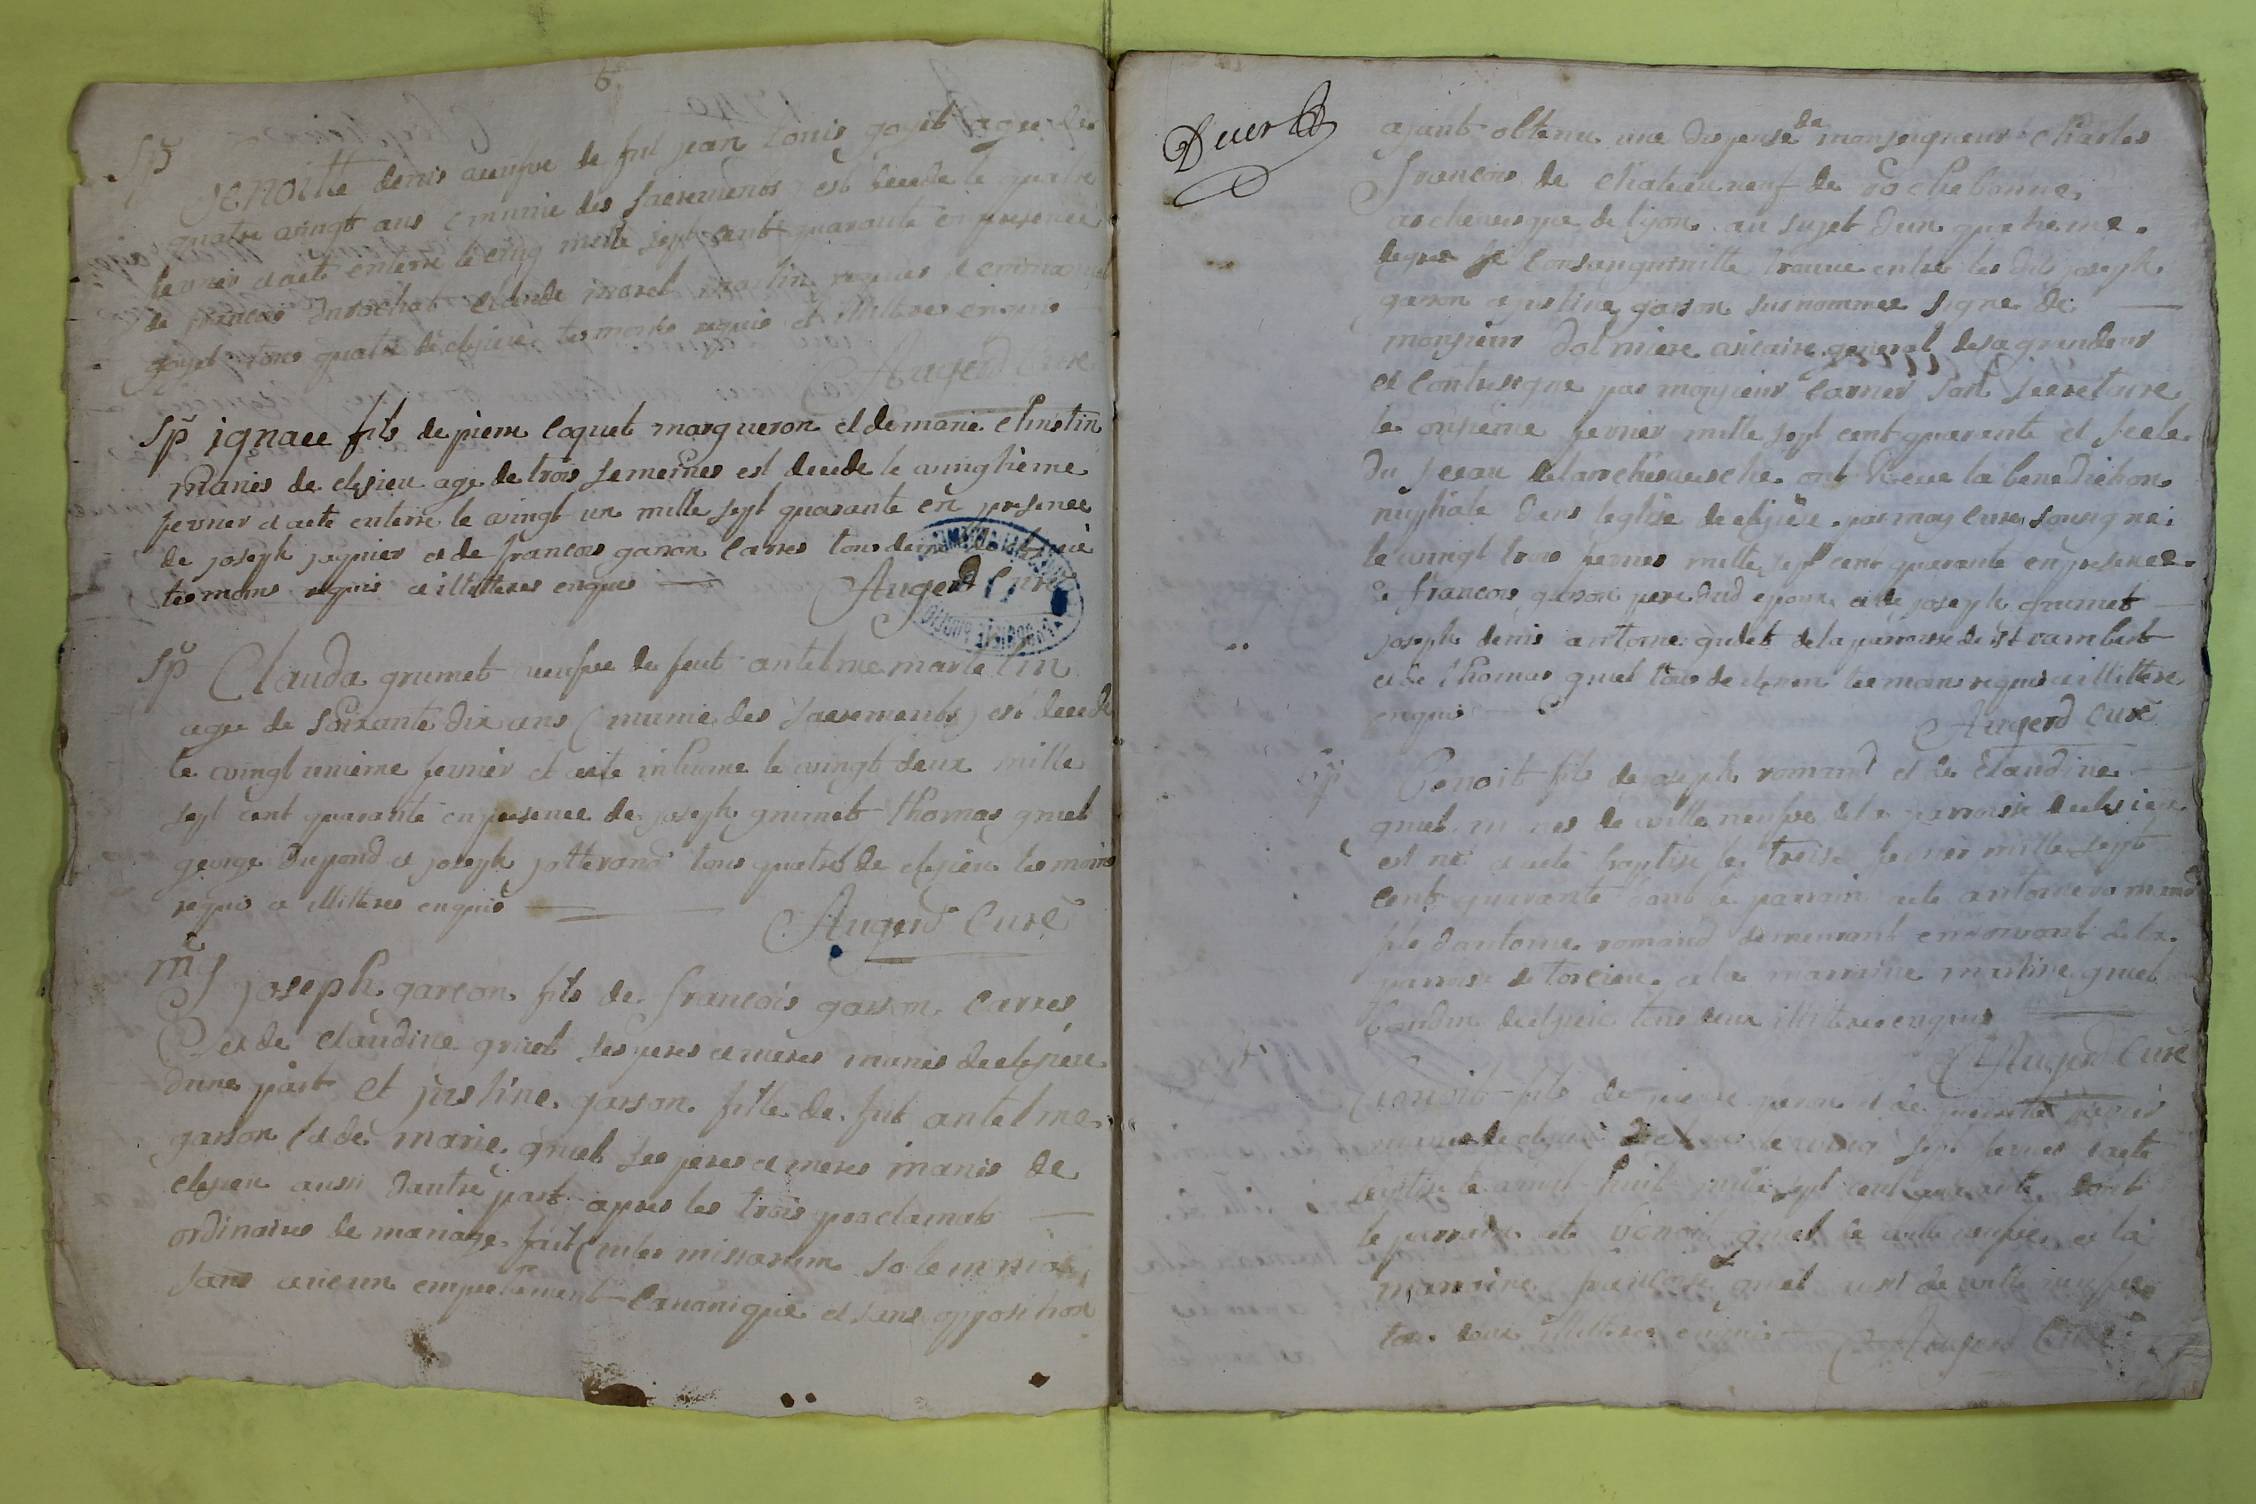 6
Sp
Benoitte denis veufve de fut jean Louis goyet agee de
quatre vingt ans (munie des sacrements) est decede le quatre
fevrier et aete enterre le cinq mille sept cent quarante en presence
de francois durochat claude morel martin reynier et emmanuel
goyet tous quatre de clesieu tesmoins requis et illitteres enquis
Augerd Curé
Sp ignace fils de pierre Coquet margueron et de marie Chrestin
maries de clesieu age de trois semeines est decede le vingtième
fevrier et aete enterre le vingt un mille sept quarante en presence
de joseph reynier et de francois garson Carres tous deux de clesieu
tesmoins requis et illitteres enquis Augerd Curé
Sp Clauda grumet veufve de feut antelme martelin
agee de soixante dix ans (munie des sacrements) est decede
le vingt unieme fevrier et aete inhume le vingt deux mille
sept cent quarante en presence de joseph grumet thomas gruel
george dupond et joseph jotterand tous quatre de clesieu tesmoins
requis et illitteres enquis
Augerd Curé
m
joseph garson fils de francois garson Carres
et de Claudine gruel ses peres et meres maries de clesieu
dune part et justine garson fille de fut antelme
garson et de marie gruel ses peres et meres maries de
clesieu aussi dautre part apres les trois proclamats
ordinaires de mariage fait (inter missarum solemnia)
sans aucun empechement Canonique et sans opposition
ayant obtenu une dispense de monseigneur Charles
francois de chateauneuf de rochebonne
archevesque de lyon au sujet dun quatrieme
degres de Consanguinitte trouve entre les dits joseph
garson et justine garson surnommee signe de
monsieur dolmiere vicaire general de sa grandeur
et Contresigne par monsieur Carrier son secretaire
le onsieme fevrier mille sept cent quarante et scele
du sceau de larchevesche ont Receu la benediction
nuptiale dans leglise de clesieu par moy Cure sousigne
le vingt trois fevrier mille sept cent quarante en presence
de francois garson pere dud epoux et de joseph grumet
joseph denis antoine gudet de la parroisse de st rambert
et de thomas gruel tous de clesieu tesmoins requis et illittere
enquis
Augerd Curé
Benoit fils de joseph romand et de Claudine
gruel maries de ville neufve de la parroisse de clesieu
est ne et aete baptise le treise fevrier mille sept
cent quarante dont le parrain aete antoine romand
fils dantoine romand demeurant en dorvant de la
parroisse de torcieu et la marraine martine gruel
de clesieu tous deux illitteres enquis
Augerd Curé
Benoit fils de pierre et de
maries de clesieu le vingt sept fevrier et aete
baptise le vingt huit mille sept cent quarante dont
le parrain aete benoit gruel de ville neufve et la
marraine francoise gruel aussi de ville neufve
tous deux illitteres enquis Augerd Curé